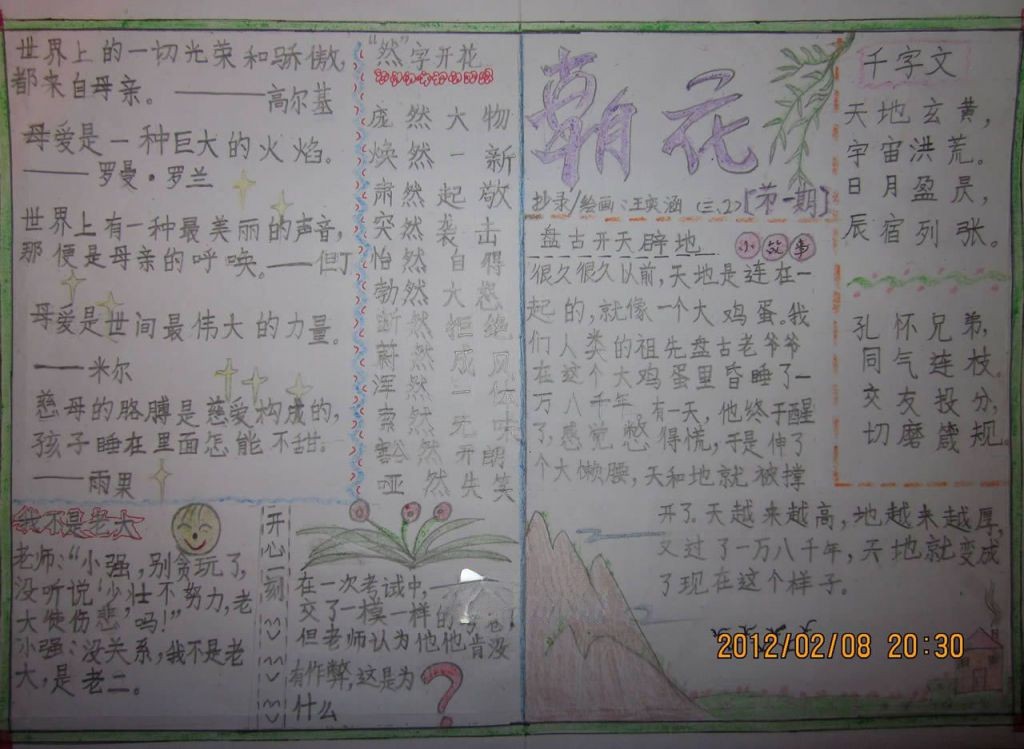 世界上的一切光荣和骄傲，
都来自母亲。——高尔基
母爱是一种巨大的火焰。
——罗曼·罗兰
世界上有一种最美丽的声音，
那便是母亲的呼唤。——但丁
母爱是世间最伟大的力量。
——米尔
慈母的胳膊是慈爱构成的，
孩子睡在里面怎能不甜。
——雨果
我不是老大
老师："小强，别贪玩了，
没听说'少壮不努力，老
大徒伤悲'吗！"
小强：没关系，我不是老
大，是老二。
"然"字开花
庞然大物
焕然一新
肃然起敬
突然袭击
怡然自得
勃然大怒
断然拒绝
蔚然成风
浑然一
索然无味
豁然开朗
哑然失笑
开心一刻
在一次考试中，
交了一模一样的
但老师认为他他肯没
有作弊，这是为
什么
?
朝花
抄录/绘画：王奕涵（三、2）[第一期]
盘古开天辟地 小故事
很久很久以前，天地是连在一
起的，就像一个大鸡蛋。我
们人类的祖先盘古老爷爷
在这个大鸡蛋里昏睡了一
万八千年。有一天，他终于醒
了，感觉憋得慌，于是伸了
个大懒腰，天和地就被撑
开了。天越来越高，地越来越厚，
又过了一万八千年，天地就变成
了现在这个样子。
千字文
天地玄黄，
宇宙洪荒。
日月盈昃，
辰宿列张。
孔怀兄弟，
同气连枝。
交友投分，
切磨箴规。
2012/02/08 20:30